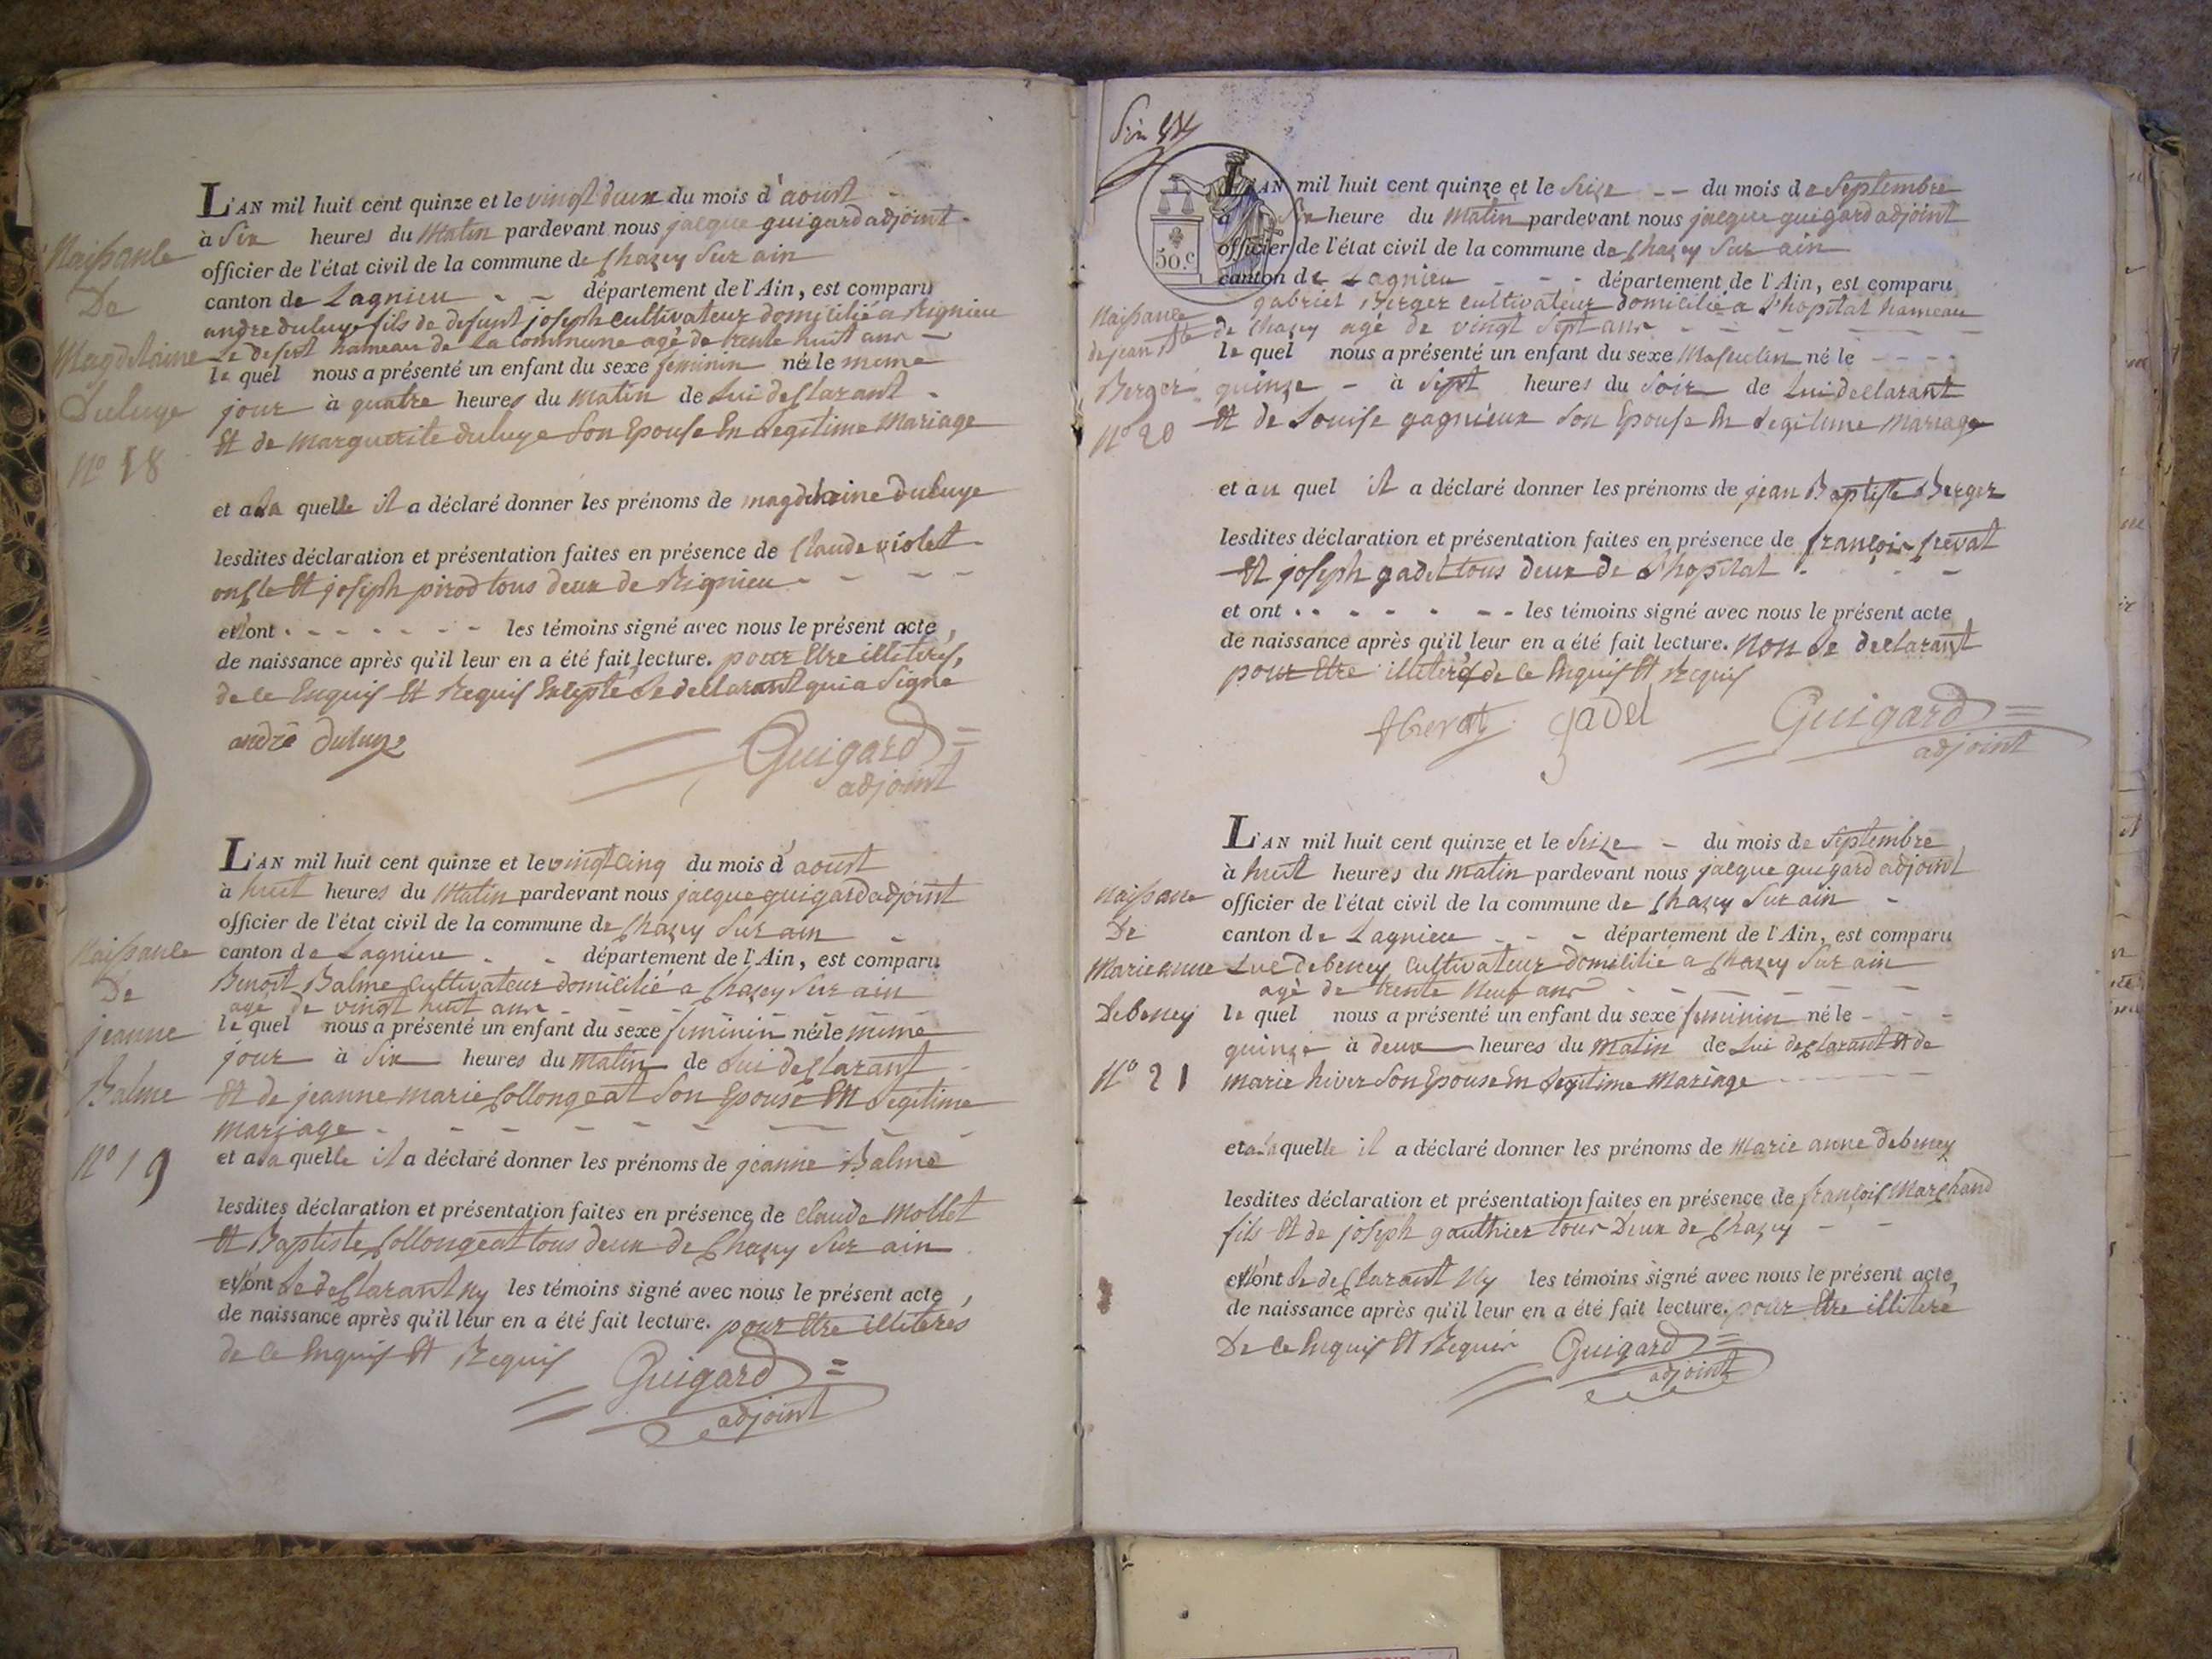 Naissance
De
Magdelaine
Duluye
N° 18
L'AN mil huit cent quinze et le vingt deux du mois d'aoust
à Six heures du Matin pardevant nous jacque guigard adjoint
officier de l'état civil de la commune de Chazey Sur ain
canton de Lagnieu - - département de l'Ain, est comparu
andre duluye fils de defunt joseph cultivateur domicilié a Rignieu
Le desert hameau de la Commune agé de trente huit ans -
le quel nous a présenté un enfant du sexe feminin né le meme
jour à quatre heures du Matin de Lui desclarant -
Et de Marguerite duluye Son Epouse En Legitime Mariage
et a la quelle il a déclaré donner les prénoms de magdelaine Duluye
lesdites déclaration et présentation faites en présence de Claude violet -
oncle Et joseph pirod tous deux de Rignieu - - - -
et n'ont - - - - - - les témoins signé avec nous le présent acte,
de naissance après qu'il leur en a été fait lecture. pour Etre illiterés,
de ce Enquis Et Requis Exepté Le declarant qui a Signé
andré Duluye
Guigard =
adjoint
Naissance
De
jeanne
Balme
N° 19
L'AN mil huit cent quinze et le vingt cinq du mois d'aoust
à huit heures du Matin pardevant nous jacque guigard adjoint
officier de l'état civil de la commune de Chazey Sur ain -
canton de Lagnieu - - département de l'Ain, est comparu
Benoit Balme cultivateur domicilié a Chazey Sur ain
agé de vingt huit ans - - - - - -
le quel nous a présenté un enfant du sexe feminin né le meme
jour à Six heures du Matin de Lui desclarant -
Et de jeanne marie Collongeat Son Epouse En Legitime
mariage - - - - - - - -
et a la quelle il a déclaré donner les prénoms de jeanne Balme
lesdites déclaration et présentation faites en présence de Claude Mollet
Et Baptiste Collongeat tous deux de Chazey Sur ain
et n'ont Le desclarant Ny les témoins signé avec nous le présent acte,
de naissance après qu'il leur en a été fait lecture. pour Etre illiterés
de ce Enquis Et Requis
Guigard =
adjoint
50.c
Naissance
de jean Bte
Berger
N° 20
L'AN mil huit cent quinze et le Seize - - du mois de Septembre
a Six heure du Matin pardevant nous jacque guigard adjoint
officier de l'état civil de la commune de Chazey Sur ain
canton de Lagnieu - - - département de l'Ain, est comparu
gabriel Berger cultivateur domicilié a L'hopital hameau
de Chazey agé de vingt Sept ans - - - - - -
le quel nous a présenté un enfant du sexe Masculin né le - - - -
quinze - à Sept heures du Soir de Lui declarant
Et de Louise gagnieux Son Epouse En Legitime Mariage
et au quel il a déclaré donner les prénoms de jean Baptiste Berger
lesdites déclaration et présentation faites en présence de françois frevat
Et joseph gadel tous deux de L'hopital - - - -
et ont - - - - - - - les témoins signé avec nous le présent acte
de naissance après qu'il leur en a été fait lecture. Non Le declarant
pour Etre illiteré de ce Enquis Et Requis
gadel
Guigard =
adjoint
Naissance
De
Marie anne
Debeney
N° 21
L'AN mil huit cent quinze et le Seize - du mois de Septembre
à huit heures du Matin pardevant nous jacque guigard adjoint
officier de l'état civil de la commune de Chazey Sur ain -
canton de Lagnieu - - - département de l'Ain, est comparu
Luc debeney Cultivateur domicilié a Chazey Sur ain
agé de trente Neuf ans - - - - - -
le quel nous a présenté un enfant du sexe feminin né le - - -
quinze à deux heures du Matin de Lui desclarant Et de
marie hiver Son Epouse En Legitime Mariage - - -
et a la quelle il a déclaré donner les prénoms de Marie anne debeney
lesdites déclaration et présentation faites en présence de françois Marchand
fils Et de joseph gauthier tous Deux de Chazey - -
et n'ont Le desclarant Ny les témoins signé avec nous le présent acte,
de naissance après qu'il leur en a été fait lecture. pour Etre illiteré
De ce Enquis Et Requis
Guigard =
adjoint